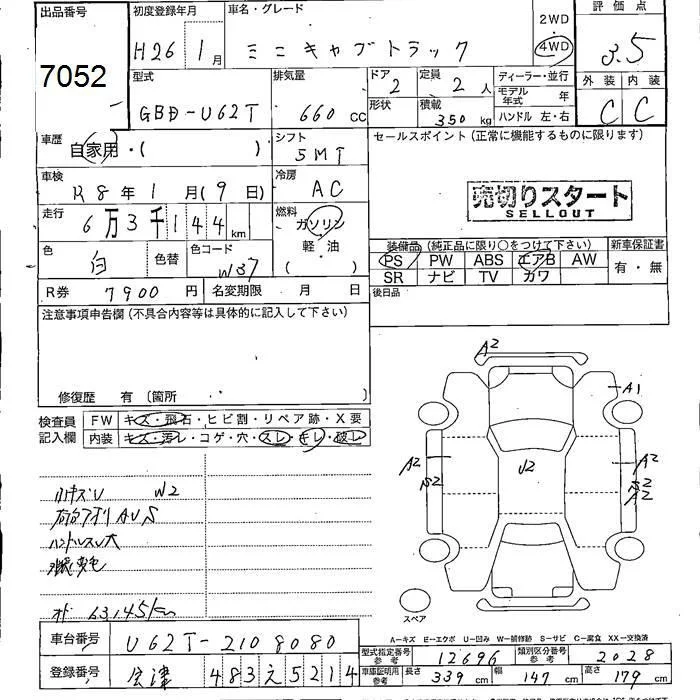 出品番号
7052
初度登録年月
H26 1月
車名・グレード
ミニキャブトラック
2WD
4WD
評価点
3.5
型式
GBD-U62T
排気量
660 CC
ドア
2
定員
2 人
形状
積載
350 kg
ディーラー・並行
モデル年式 年
ハンドル 左・右
外装 内装
C C
車歴
自家用・( )
シフト
5MT
セールスポイント(正常に機能するものに限ります)
車検
R8年1月(9日)
冷房
AC
売切りスタート
SELLOUT
走行
6万3千144km
燃料
ガソリン
軽・油
( )
色
白
色替
色コード
W37
装備品(純正品に限り〇をつけて下さい)
新車保証書
PS PW ABS エアB AW
有・無
SR ナビ TV カワ
R券 7900円
名変期限 月 日
後日品
注意事項申告欄(不具合内容等は具体的に記入して下さい)
修復歴 有 〔箇所 〕
検査員
記入欄
FW キズ・飛石・ヒビ割・リペア跡・X要
内装 キズ・汚レ・コゲ・穴・スレ・キレ・破レ
A2
A1
A2
U2
A2
S2
S2
A2
小キズU W2
アオリAUS
ハンドルスレ大
63,145km
スペア
A-キズ E-エクボ U-凹み W-補修跡 S-サビ C-腐食 XX-交換済
車台番号
U62T-2108080
型式指定番号
参考
12696
類別区分番号
参考
2028
登録番号
会津 483 え 5214
車庫証明用
参考
長さ 339cm
幅 147cm
高さ 179cm